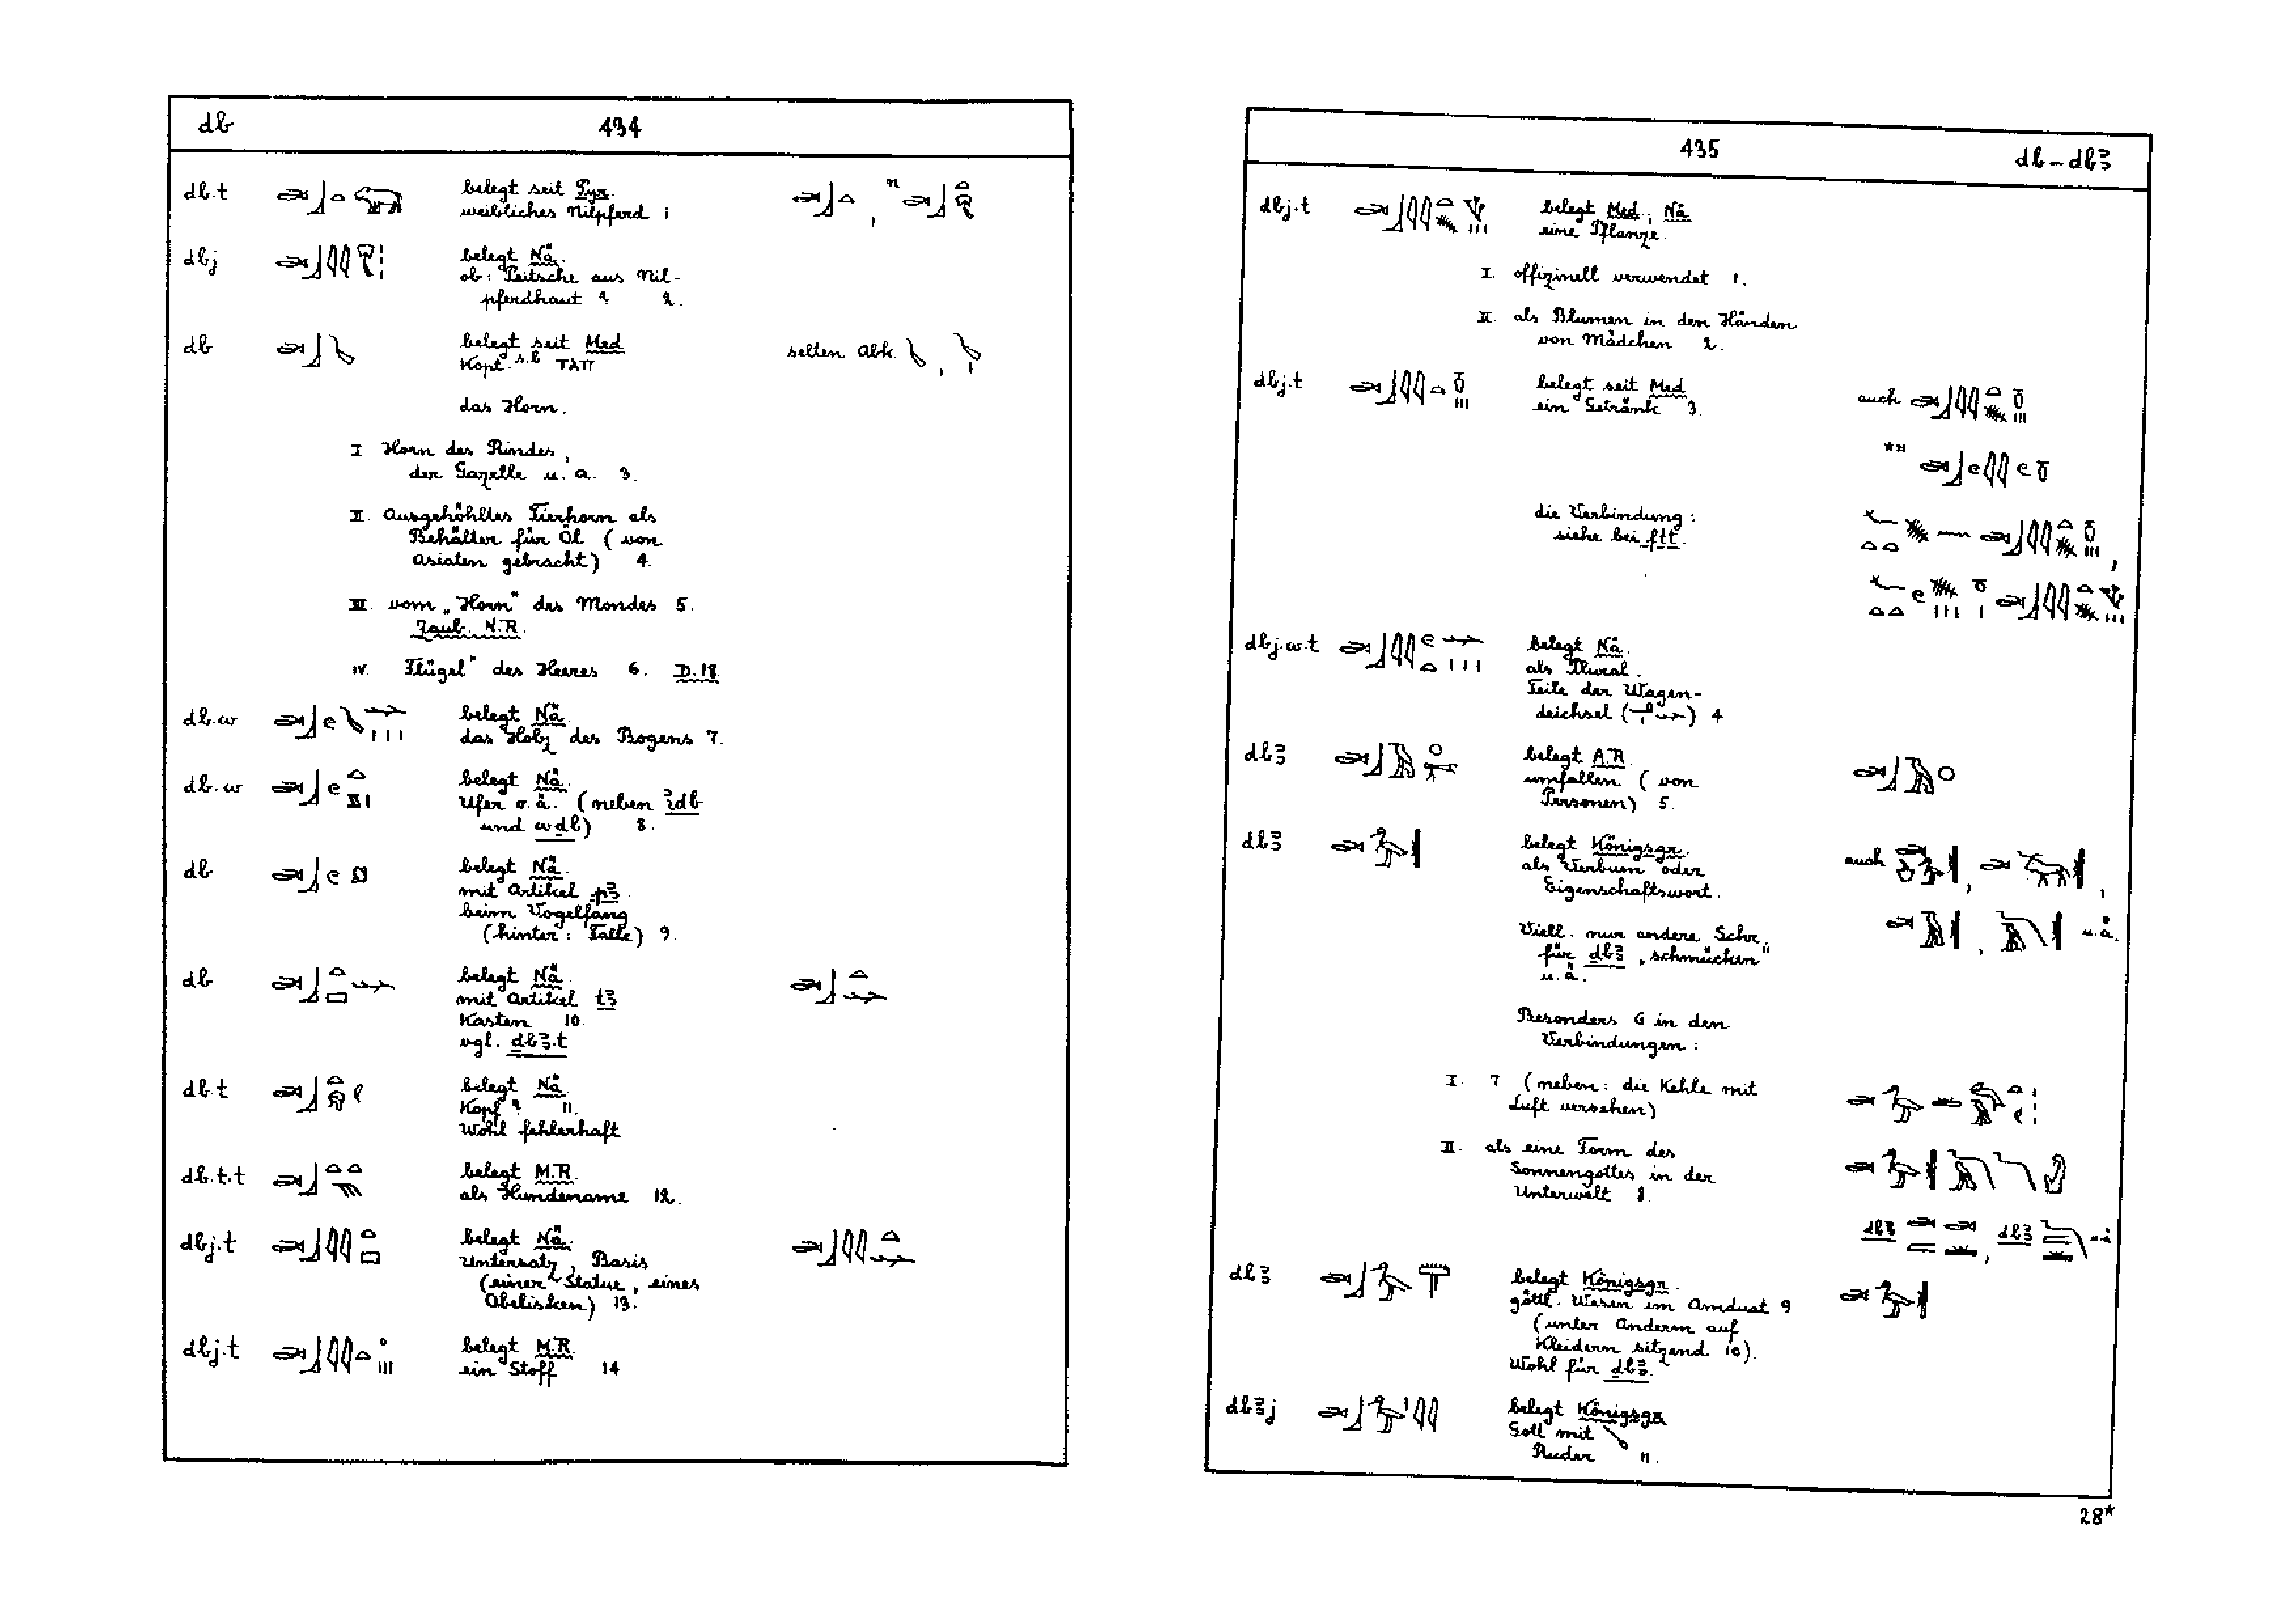 db 434
db.t belegt seit Pyr.
weibliches Nilpferd 1
dbj belegt Nä.
ob: Peitsche aus Nil-
pferdhaut ? 2.
db belegt seit Med selten Abk.
Kopt. s.b ⲦⲀⲠ
das Horn.
I Horn des Rindes,
der Gazelle u. a. 3.
II. Ausgehöhltes Tierhorn als
Behälter für Öl (von
Asiaten gebracht) 4.
III. vom „Horn" des Mondes 5.
Zaub. N.R.
IV. Flügel" des Heeres 6. D.18
db.w belegt Nä.
das Holz des Bogens 7.
db.w belegt Nä.
Ufer o.ä. (neben ꜣdb
und wḏb) 8.
db belegt Nä.
mit Artikel pꜣ.
beim Vogelfang
(hinter: Falle) 9.
db belegt Nä.
mit Artikel tꜣ
Kasten 10.
vgl. ḏbꜣ.t
db.t belegt Nä.
Kopf ? 11.
Wohl fehlerhaft
db.t.t belegt M.R.
als Hundename 12.
dbj.t belegt Nä.
Untersatz, Basis
(einer Statue, eines
Obelisken) 13.
dbj.t belegt M.R.
ein Stoff 14
435 db-dbꜣ
dbj.t belegt Med; Nä
eine Pflanze.
I. offizinell verwendet 1.
II. als Blumen in den Händen
von Mädchen 2.
dbj.t belegt seit Med
ein Getränk 3. auch
die Verbindung:
siehe bei ftt.
dbj.w.t belegt Nä.
als Plural.
Teile der Wagen-
deichsel ( ) 4
dbꜣ belegt A.R.
umfallen (von
Personen) 5.
dbꜣ belegt Königsgr.
als Verbum oder auch
Eigenschaftswort.
Viell. nur andere Schr. u.ä.
für ḏbꜣ „schmücken"
u.ä.
Besonders 6 in den
Verbindungen:
I. 7 (neben: die Kehle mit
Luft versehen)
II. als eine Form des
Sonnengottes in der
Unterwelt 8.
dbꜣ , dbꜣ u.ä
dbꜣ belegt Königsgr.
göttl. Wesen im Amduat 9
(unter Anderm auf
Kleidern sitzend 10).
Wohl für ḏbꜣ.
dbꜣj belegt Königsgr
Gott mit
Ruder 11.
28*